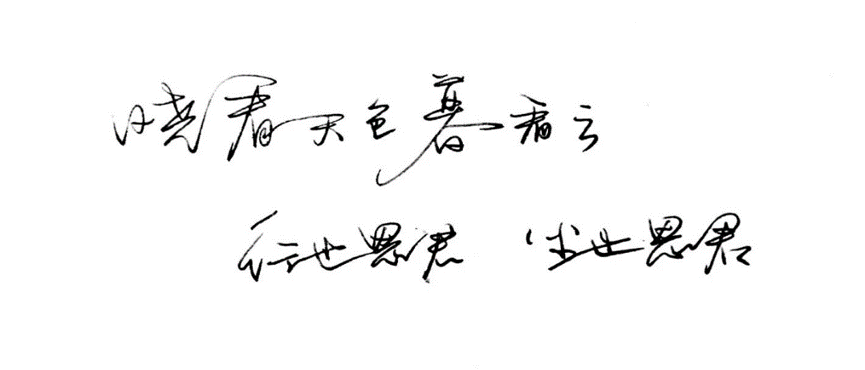 晓看天色暮看云
行也思君 坐也思君